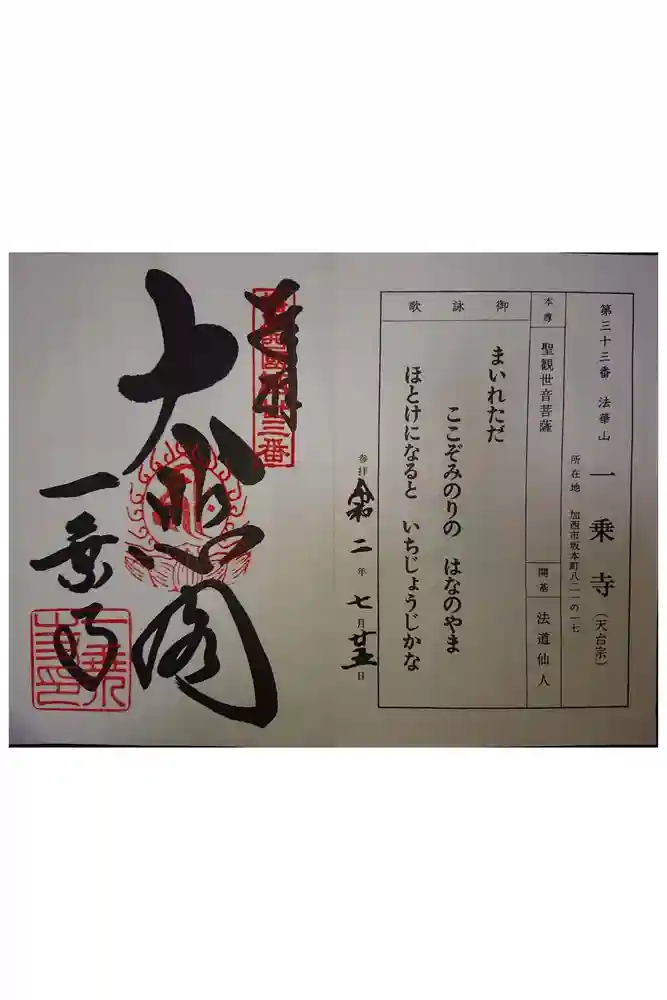 第三十三番 法華山 一乗寺(天台宗)
所在地 加西市坂本町八二一の一七
本尊 聖観世音菩薩
開基 法道仙人
御詠歌
まいれただ
ここぞみのりの はなのやま
ほとけになると いちじょうじかな
参拝 令和二年七月廿五日
奉拝
大悲閣
一乗寺